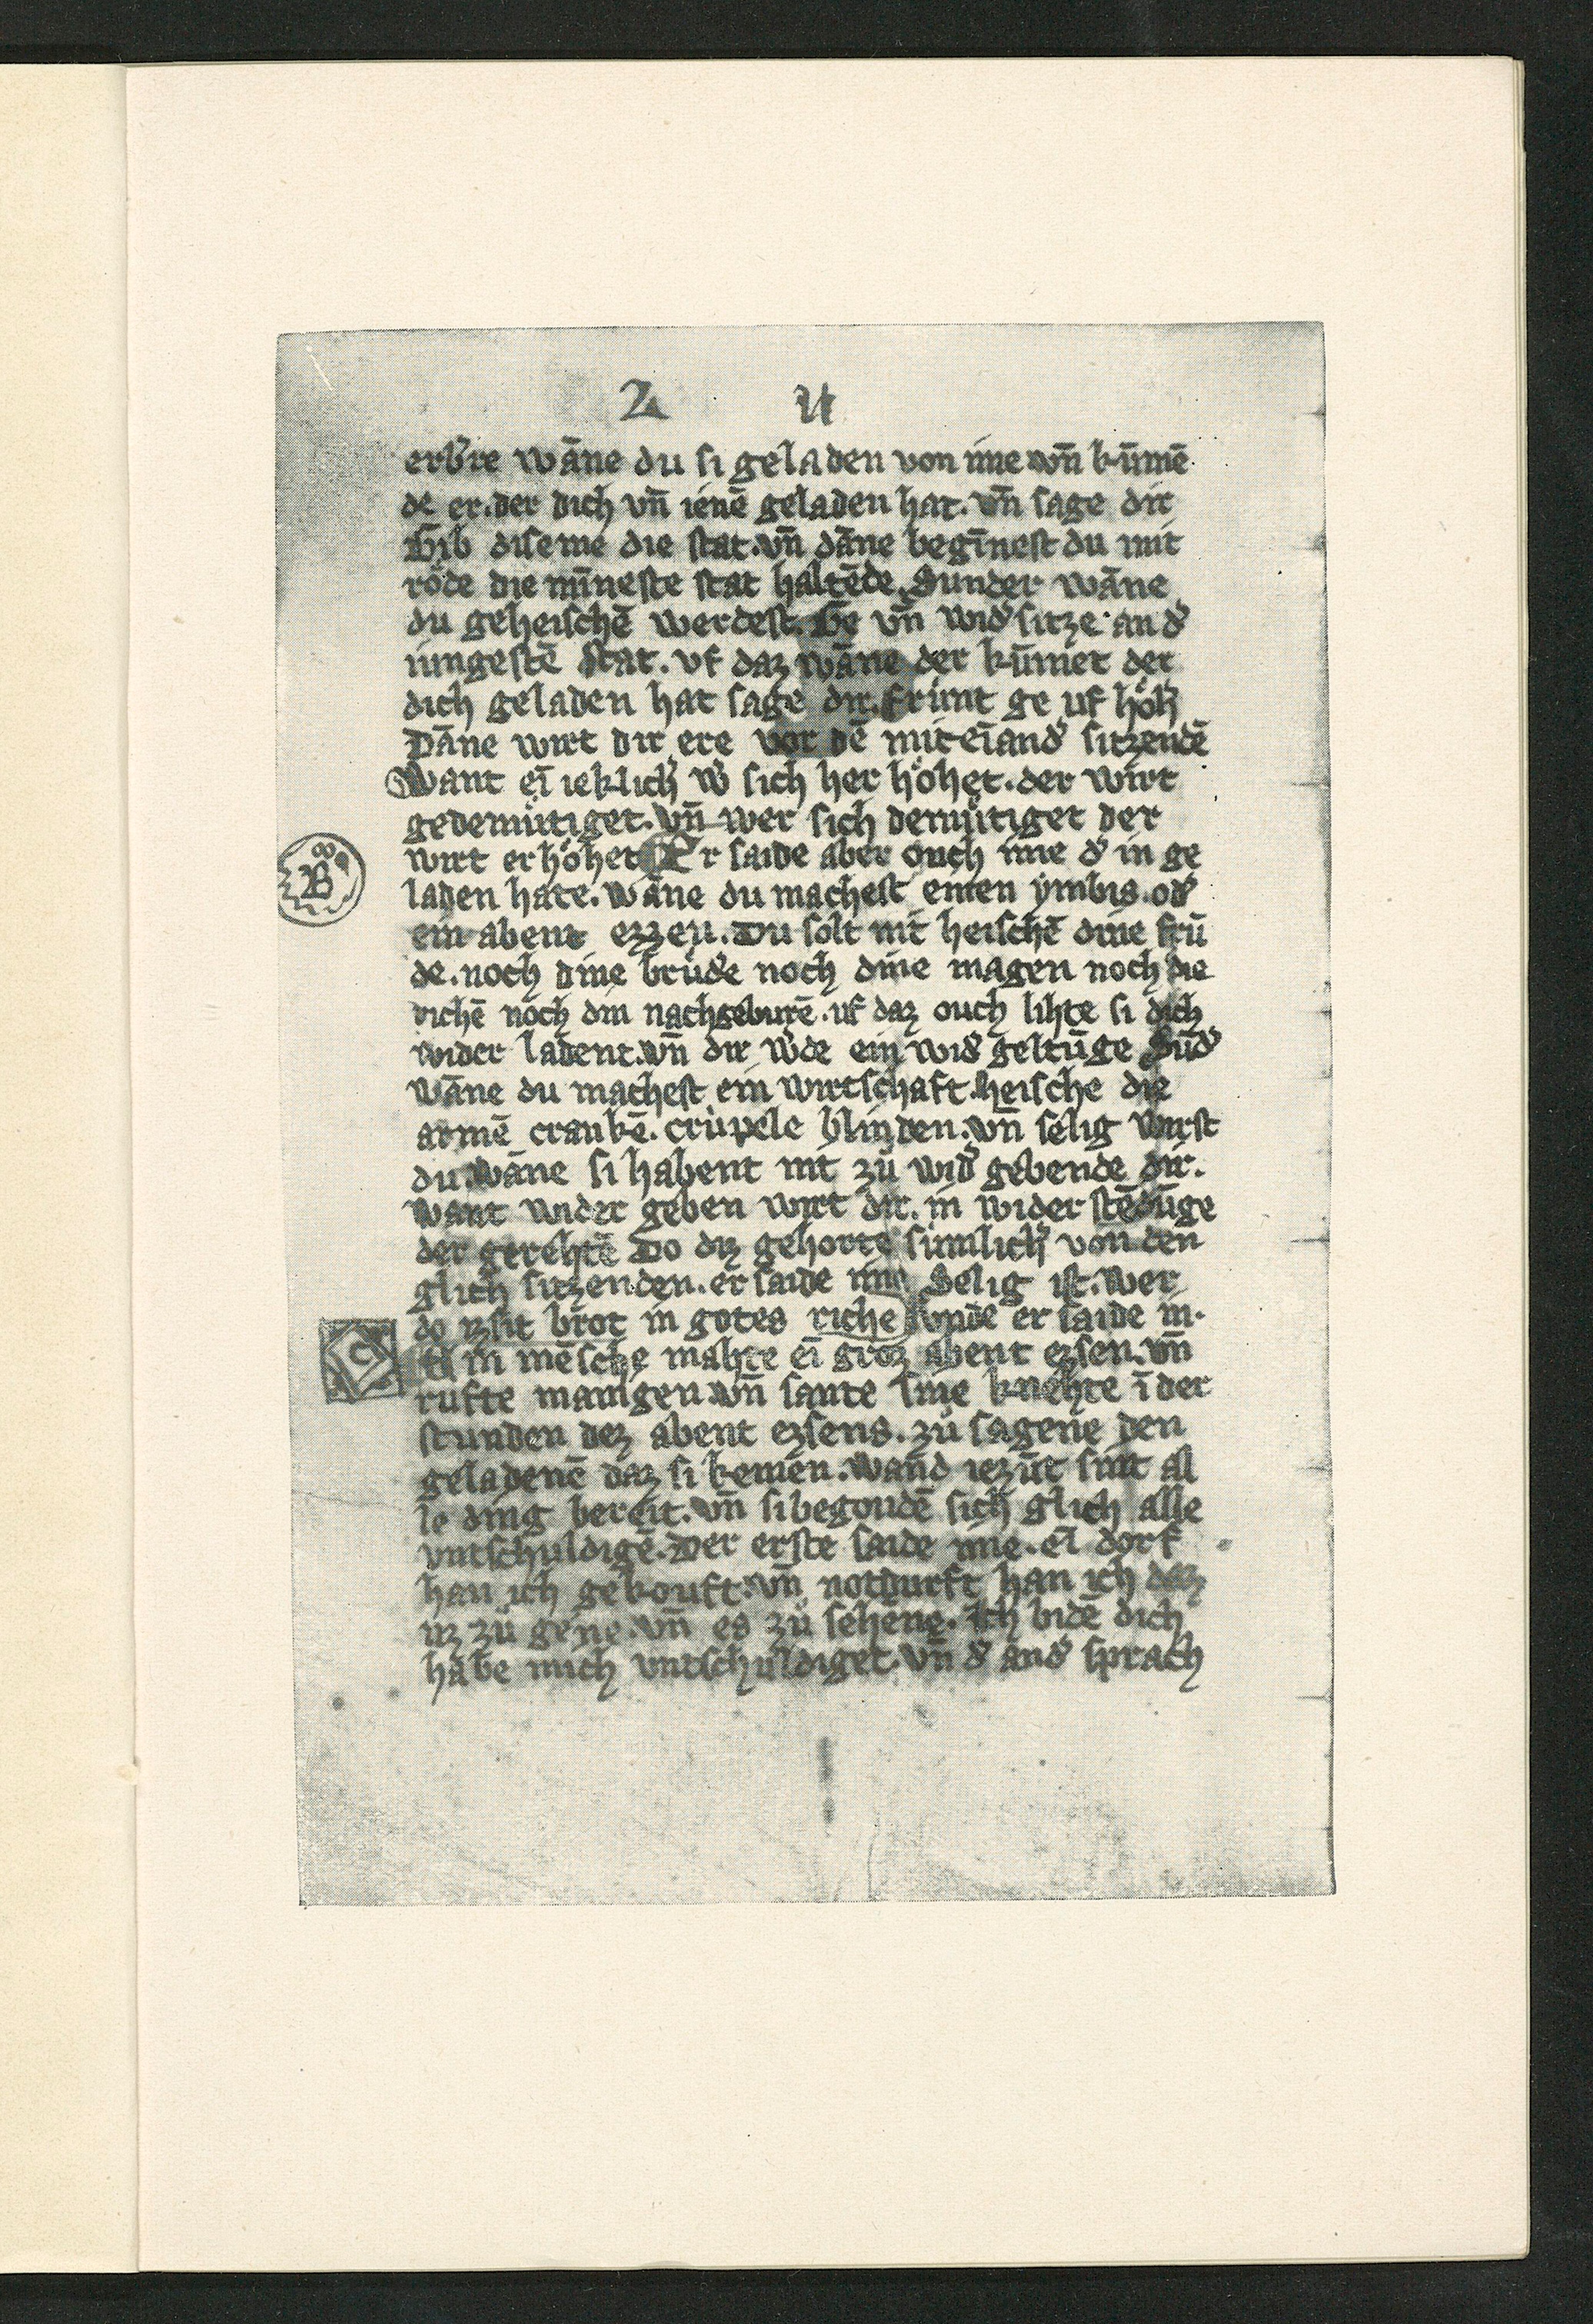 L U
erb̾re wāne du si geladen von ime vn̄ kūmē
de er. der dich vn̄ ienē geladen hat. vn̄ sage dir
Gib diseme die stat. vn̄ dāne begīnest du mit
röde die mīneste stat haltēde. Sunder wāne
du geheischē werdest. Ge vn̄ wid̾ sitze an d̾
iungestē stat. vf daz wāne der kūmet der
dich geladen hat sage dir. frunt ge uf höh̾
Dāne wirt dir ere vor dē mit eīand̾ sitzendē
Want eī ieklich̾ w̾ sich her höhet. der wirt
gedemütiget. vn̄ wer sich demütiget der
wirt erhöhet Er saide aber ouch ime d̾ in ge
laden hate. Wāne du machest einen ymbis. od̾
ein abent ezzen. Du solt nit heischē dine frū
de. noch dine brüd̾e noch dine magen noch die
richē noch din nachgeburē. uf daz ouch lihte si dich
wider ladent. vn̄ dir w̾de ein wid̾ geltūge Sūd̾
wāne du machest ein wirtschaft. heische die
armē crankē. crüpele blinden. vn̄ selig wirst
du. wāne si habent nit zü wid̾ gebende dir.
Want wider geben wirt dir. in wider stēdūge
der gerehtē Do diz gehorte sümlich̾ von den
glich sitzenden. er saide ime Selig ist. wer
do izsit brot in gotes riche vnde er saide in.
C
Ein mēsche mahte eī groz abent ezsen. vn̄
rufte manigen. vn̄ sante sine knehte ī der
stunden dez abent ezsens. zü sagene den
geladenē daz si kemen. wand iezūt sint al
le ding bereit. vn̄ si begondē sich glich alle
vntschuldigē. Der erste saide ime. eī dorf
han ich gekouft. vn̄ notdurft han ich daz
uz zü gene. vn̄ es zü sehene. ich bidē dich
habe mich vntschuldiget. vn̄ d̾ and̾ sprach